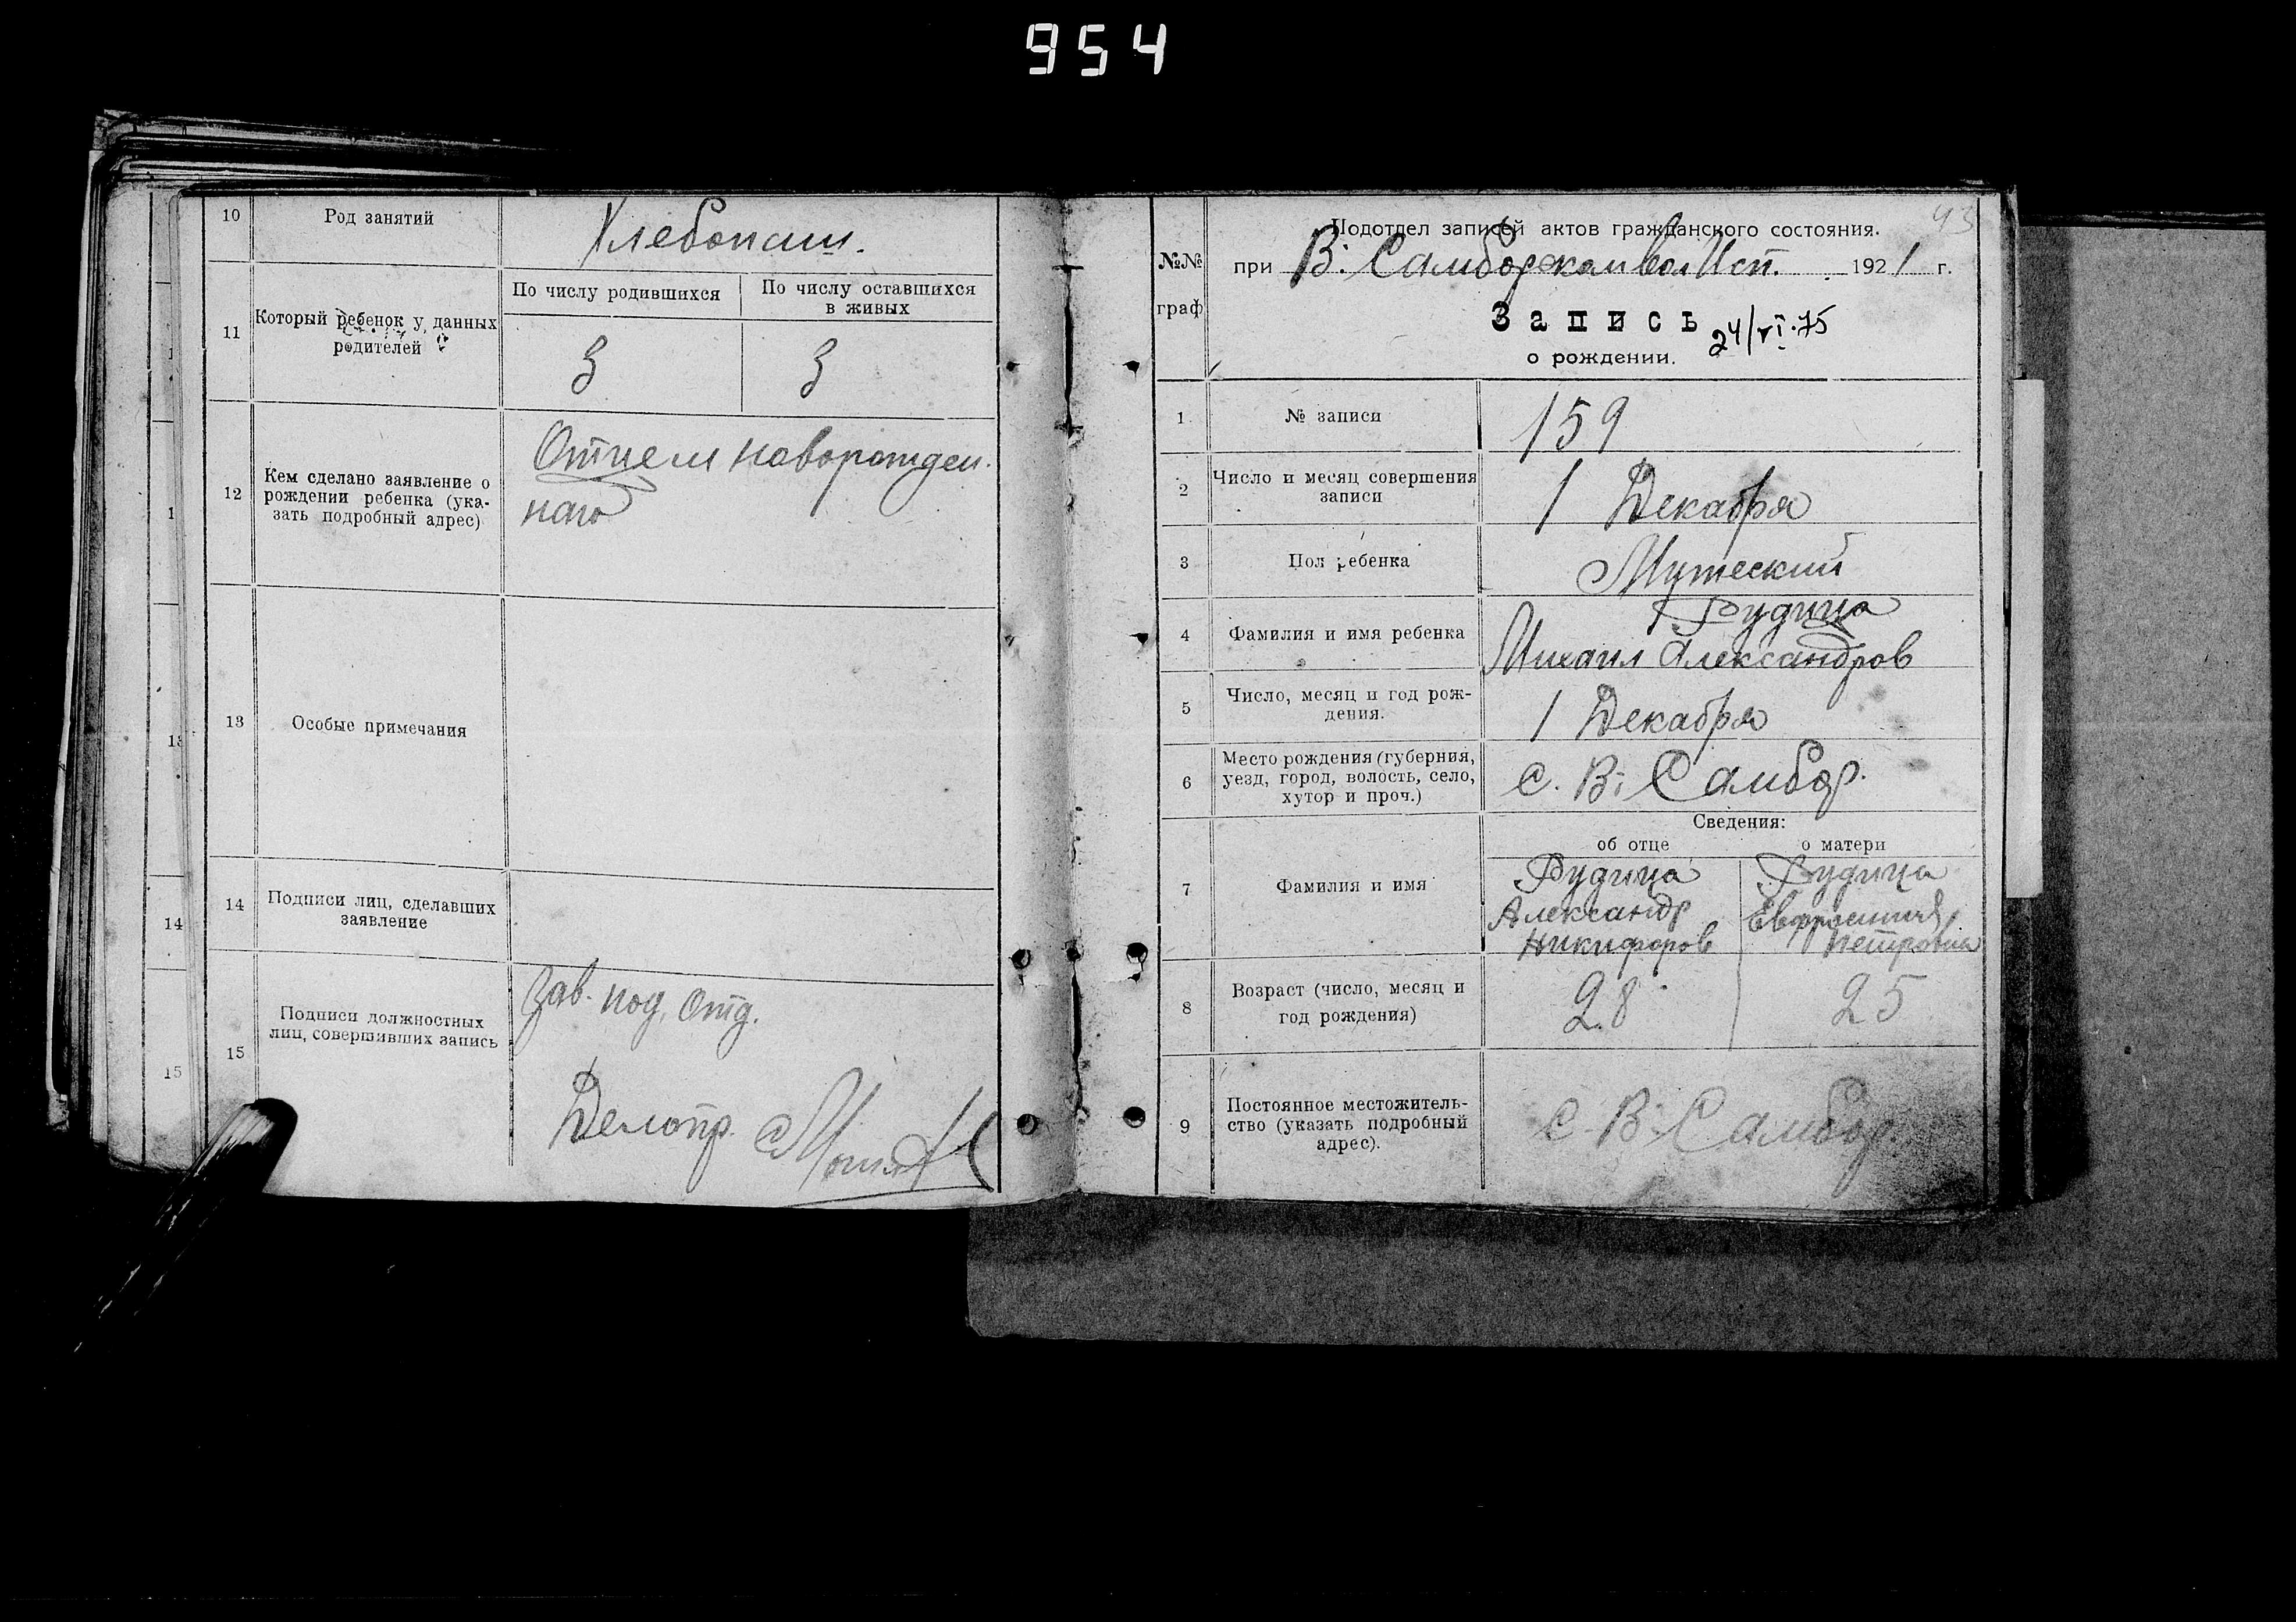 954
10
Род занятий
Хлебопаш.
11
Который ребенок у данных
родителей
По числу родившихся
По числу оставшихся
в живых
3
3
12
Кем сделано заявление о
рождении ребенка (ука-
зать подробный адрес)
Отцем наворожден.
наго
13
Особые примечания
14
Подписи лиц, сделавших
заявление
15
Подписи должностных
лиц, совершивших запись
Зав. под. Отд.
Делопр.
13
14
15
43
№№
граф
Подотдел записей актов гражданского состояния.
при В. Самборском вол Исп. 1921 г.
Запись
24/VI.75
о рождении.
1
№ записи
159
2
Число и месяц совершения
записи
1 Декабря
3
Пол ребенка
Мужеский
4
Фамилия и имя ребенка
Рудица
Михаил Александров
5
Число, месяц и год рож-
дения.
1 Декабря
6
Место рождения (губерния,
уезд, город, волость, село,
хутор и проч.)
с. В. Самбор.
Сведения:
об отце
о матери
7
Фамилия и имя
Рудица
Александр
Никифоров
Рудица
Евфросиния
Петровна
8
Возраст (число, месяц и
год рождения)
28
25
9
Постоянное местожитель-
ство (указать подробный
адрес).
с. В. Самбор.